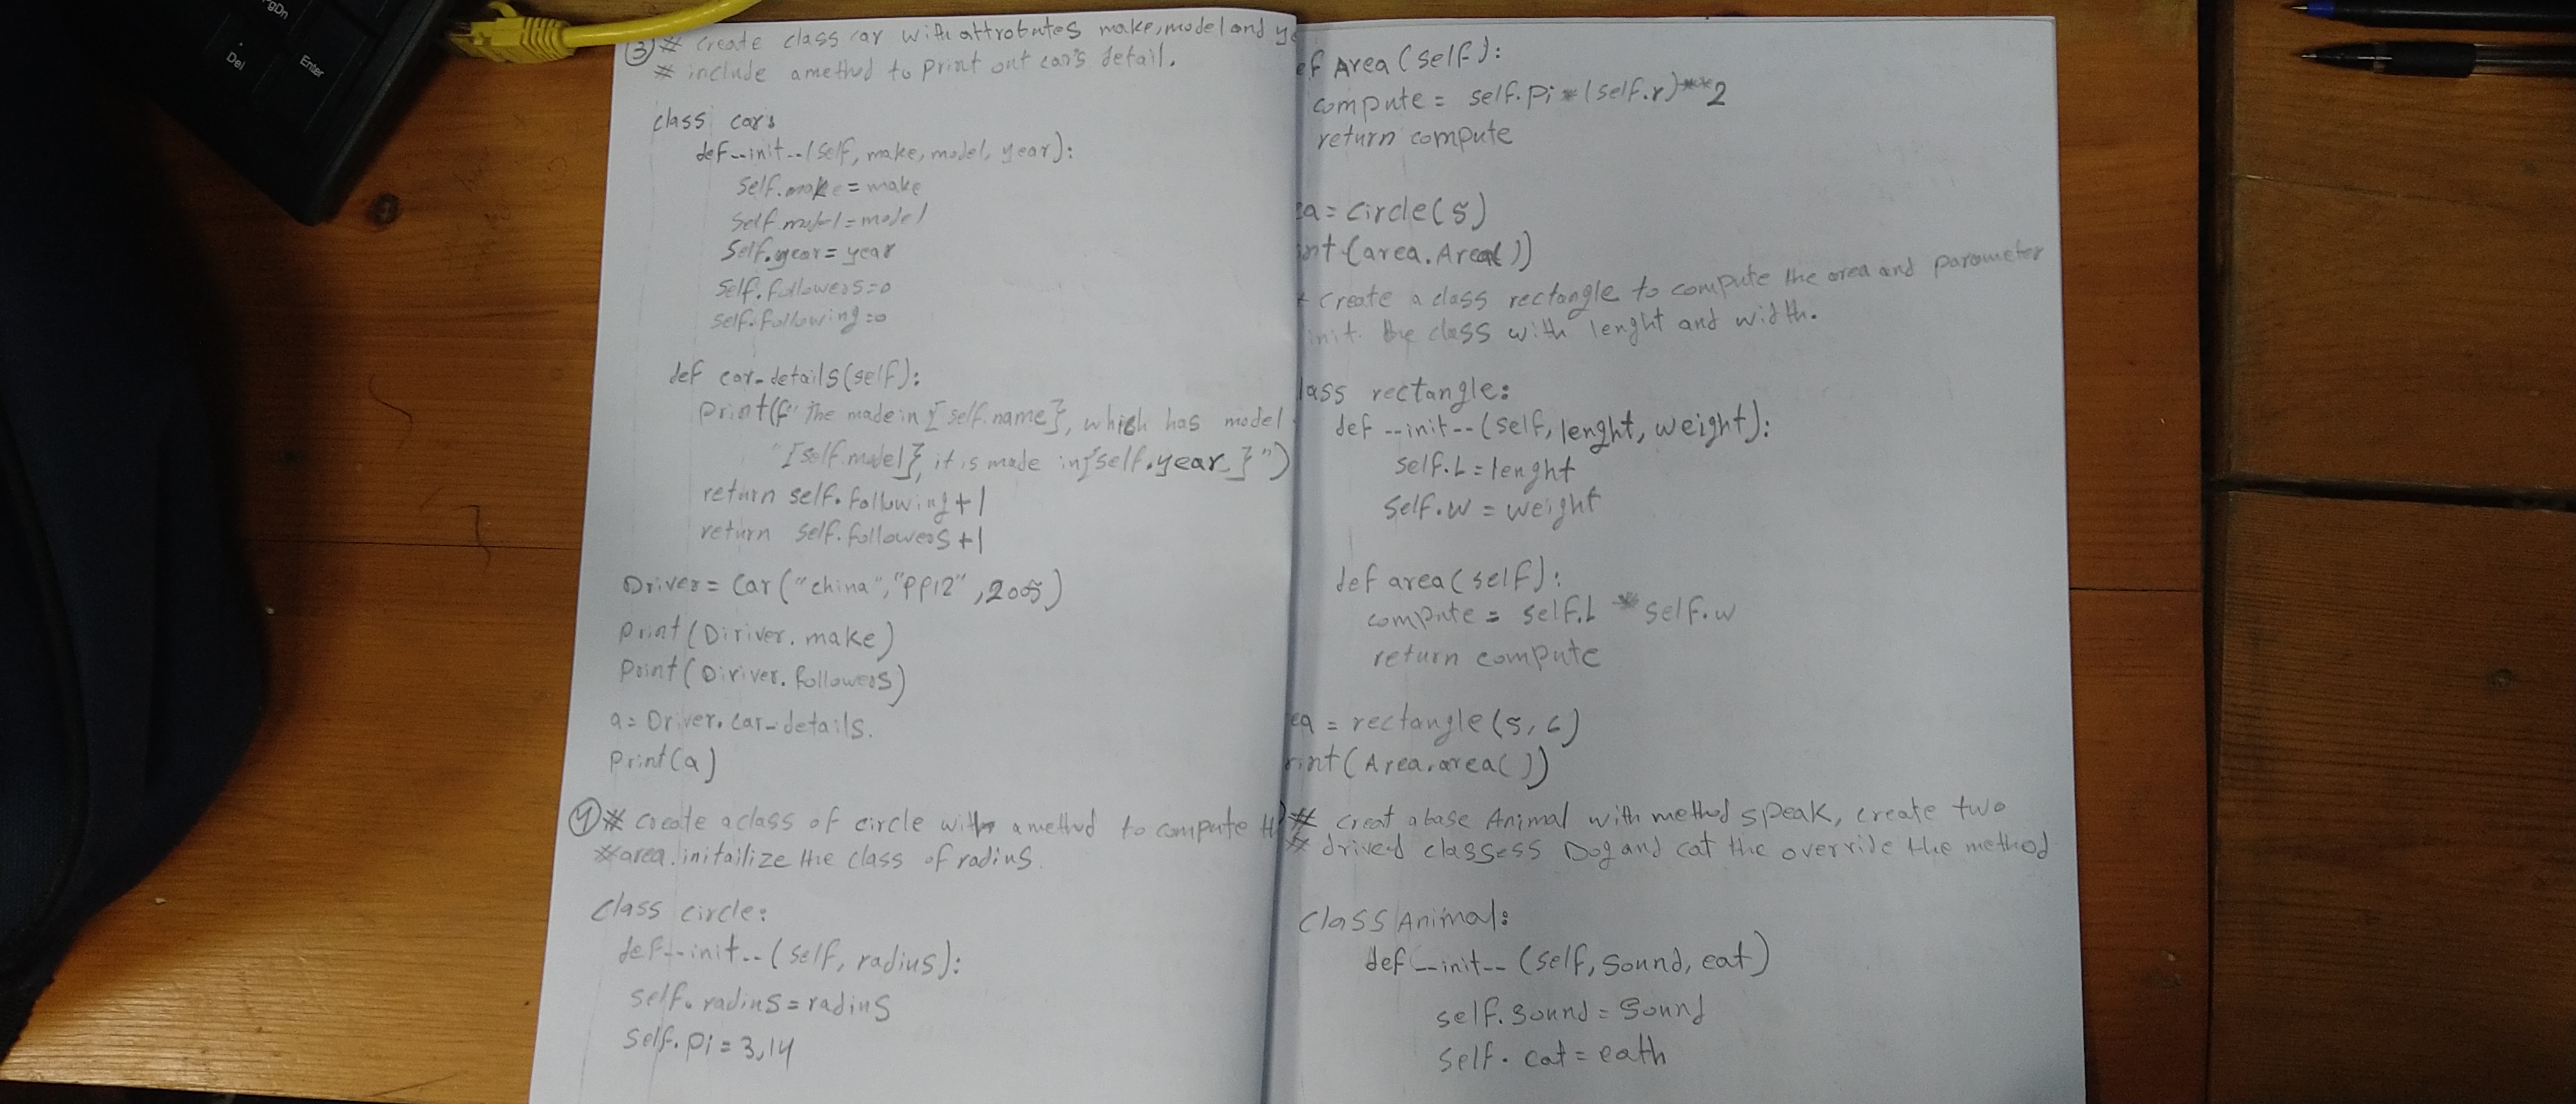 PgDn
Del
Enter
③ # create class car with attrobutes make, model and ye
# include a method to print out car's detail.
class cars
def --init--(self, make, model, year):
self.make = make
self.model = model
self.year = year
self.followers = 0
self.following = 0
def car-details(self):
print(f" the made in {self.name}, which has model
"{self.model}, it is made in {self.year}")
return self.following + 1
return self.followers + 1
Driver = Car("china", "PP12", 2005)
print(Diriver.make)
print(Diriver.followers)
a = Driver.car-details.
print(a)
④ # create a class of circle with a method to compute th
# area. initailize the class of radius.
class circle:
def --init--(self, radius):
self.radius = radius
self.pi = 3.14
ef Area(self):
compute = self.pi * (self.r)**2
return compute
ea = circle(5)
int(area.Area())
# create a class rectangle to compute the area and parameter
init. the class with lenght and width.
lass rectangle:
def --init--(self, lenght, weight):
self.L = lenght
self.w = weight
def area(self):
compute = self.L * self.w
return compute
ea = rectangle(5, 6)
rint(Area.area())
# creat a base Animal with method speak, create two
# drived classess Dog and cat the override the method
class Animal:
def --init--(self, sound, eat)
self.sound = sound
self.eat = eath